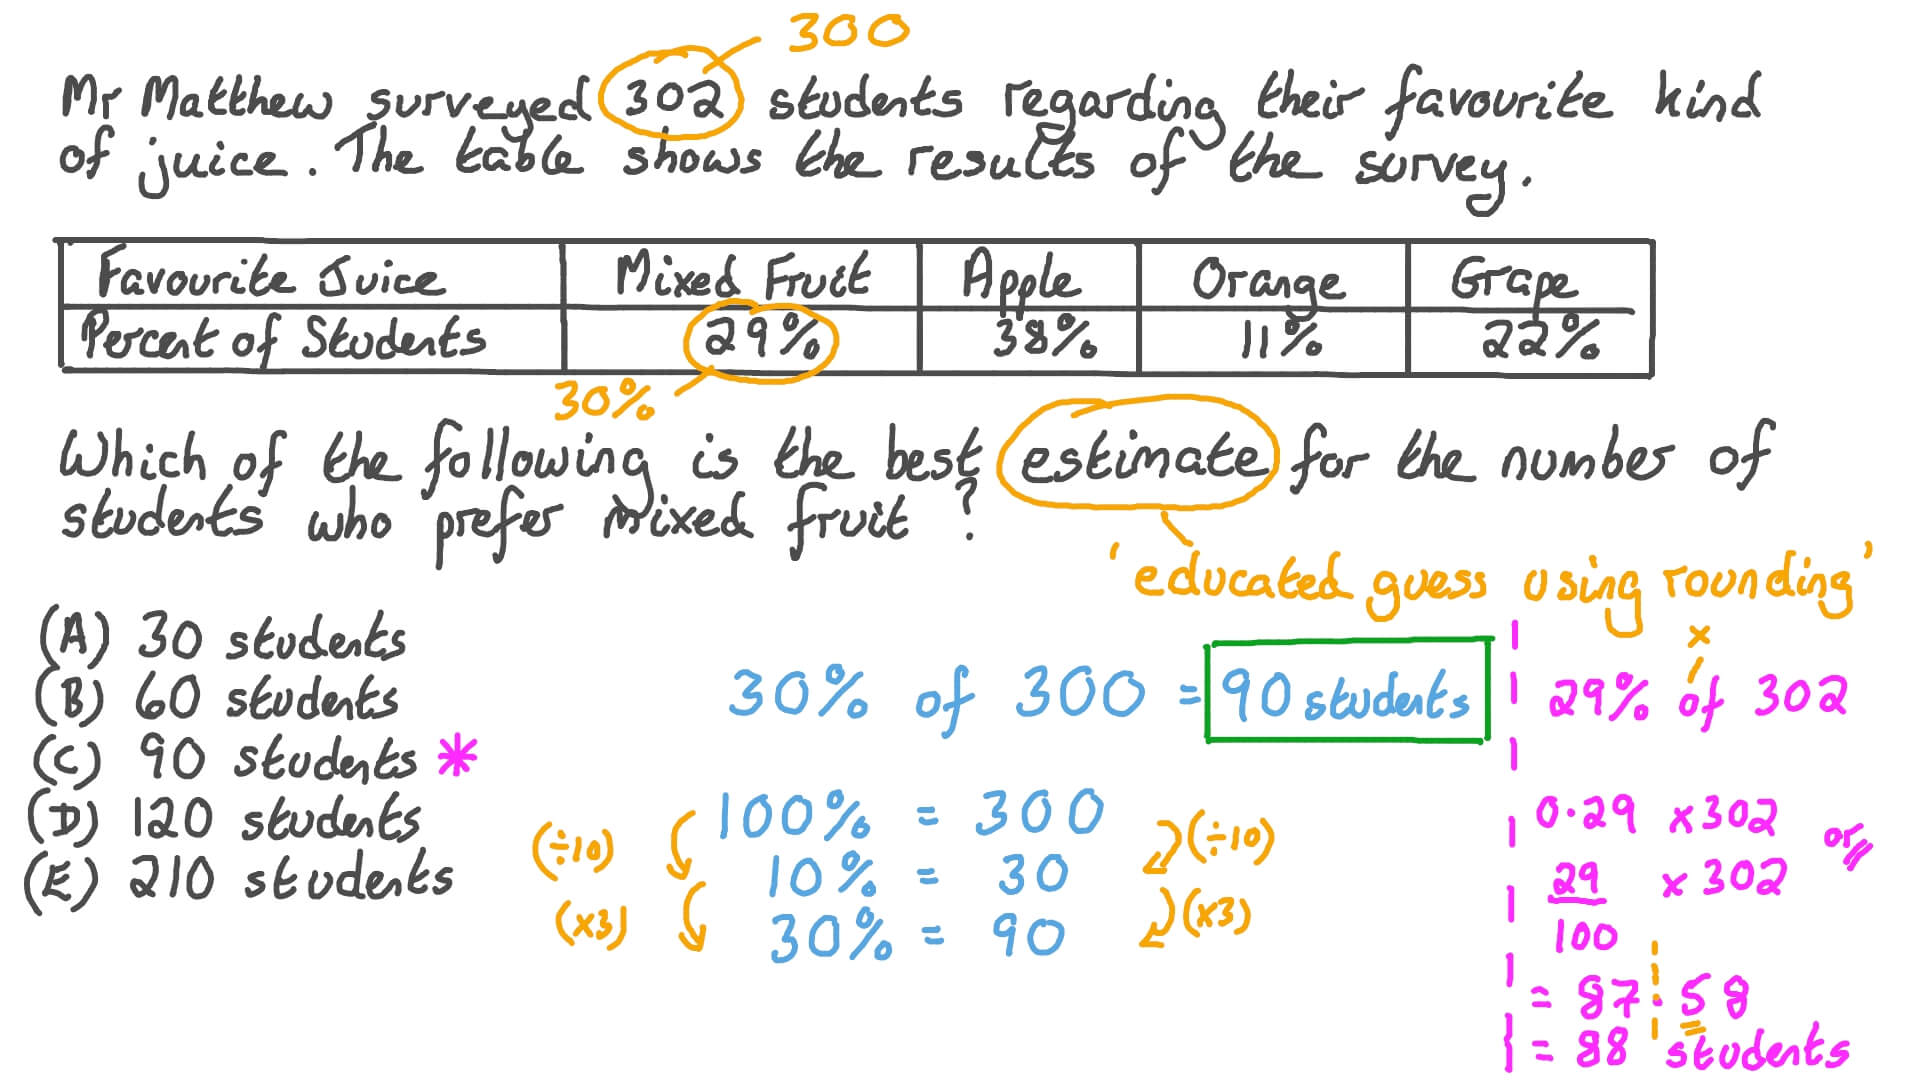 300
Mr Matthew surveyed 302 students regarding their favourite kind
of juice. The table shows the results of the survey.
Favourite Juice Mixed Fruit Apple Orange Grape
Percent of Students 29% 38% 11% 22%
30%
Which of the following is the best estimate for the number of
students who prefer mixed fruit?
'educated guess using rounding'
(A) 30 students
(B) 60 students
(C) 90 students *
(D) 120 students
(E) 210 students
30% of 300 = 90 students
100% = 300
(÷10) (÷10)
10% = 30
(x3) (x3)
30% = 90
x
29% of 302
0.29 x 302
or
29 x 302
100
= 87.58
= 88 students